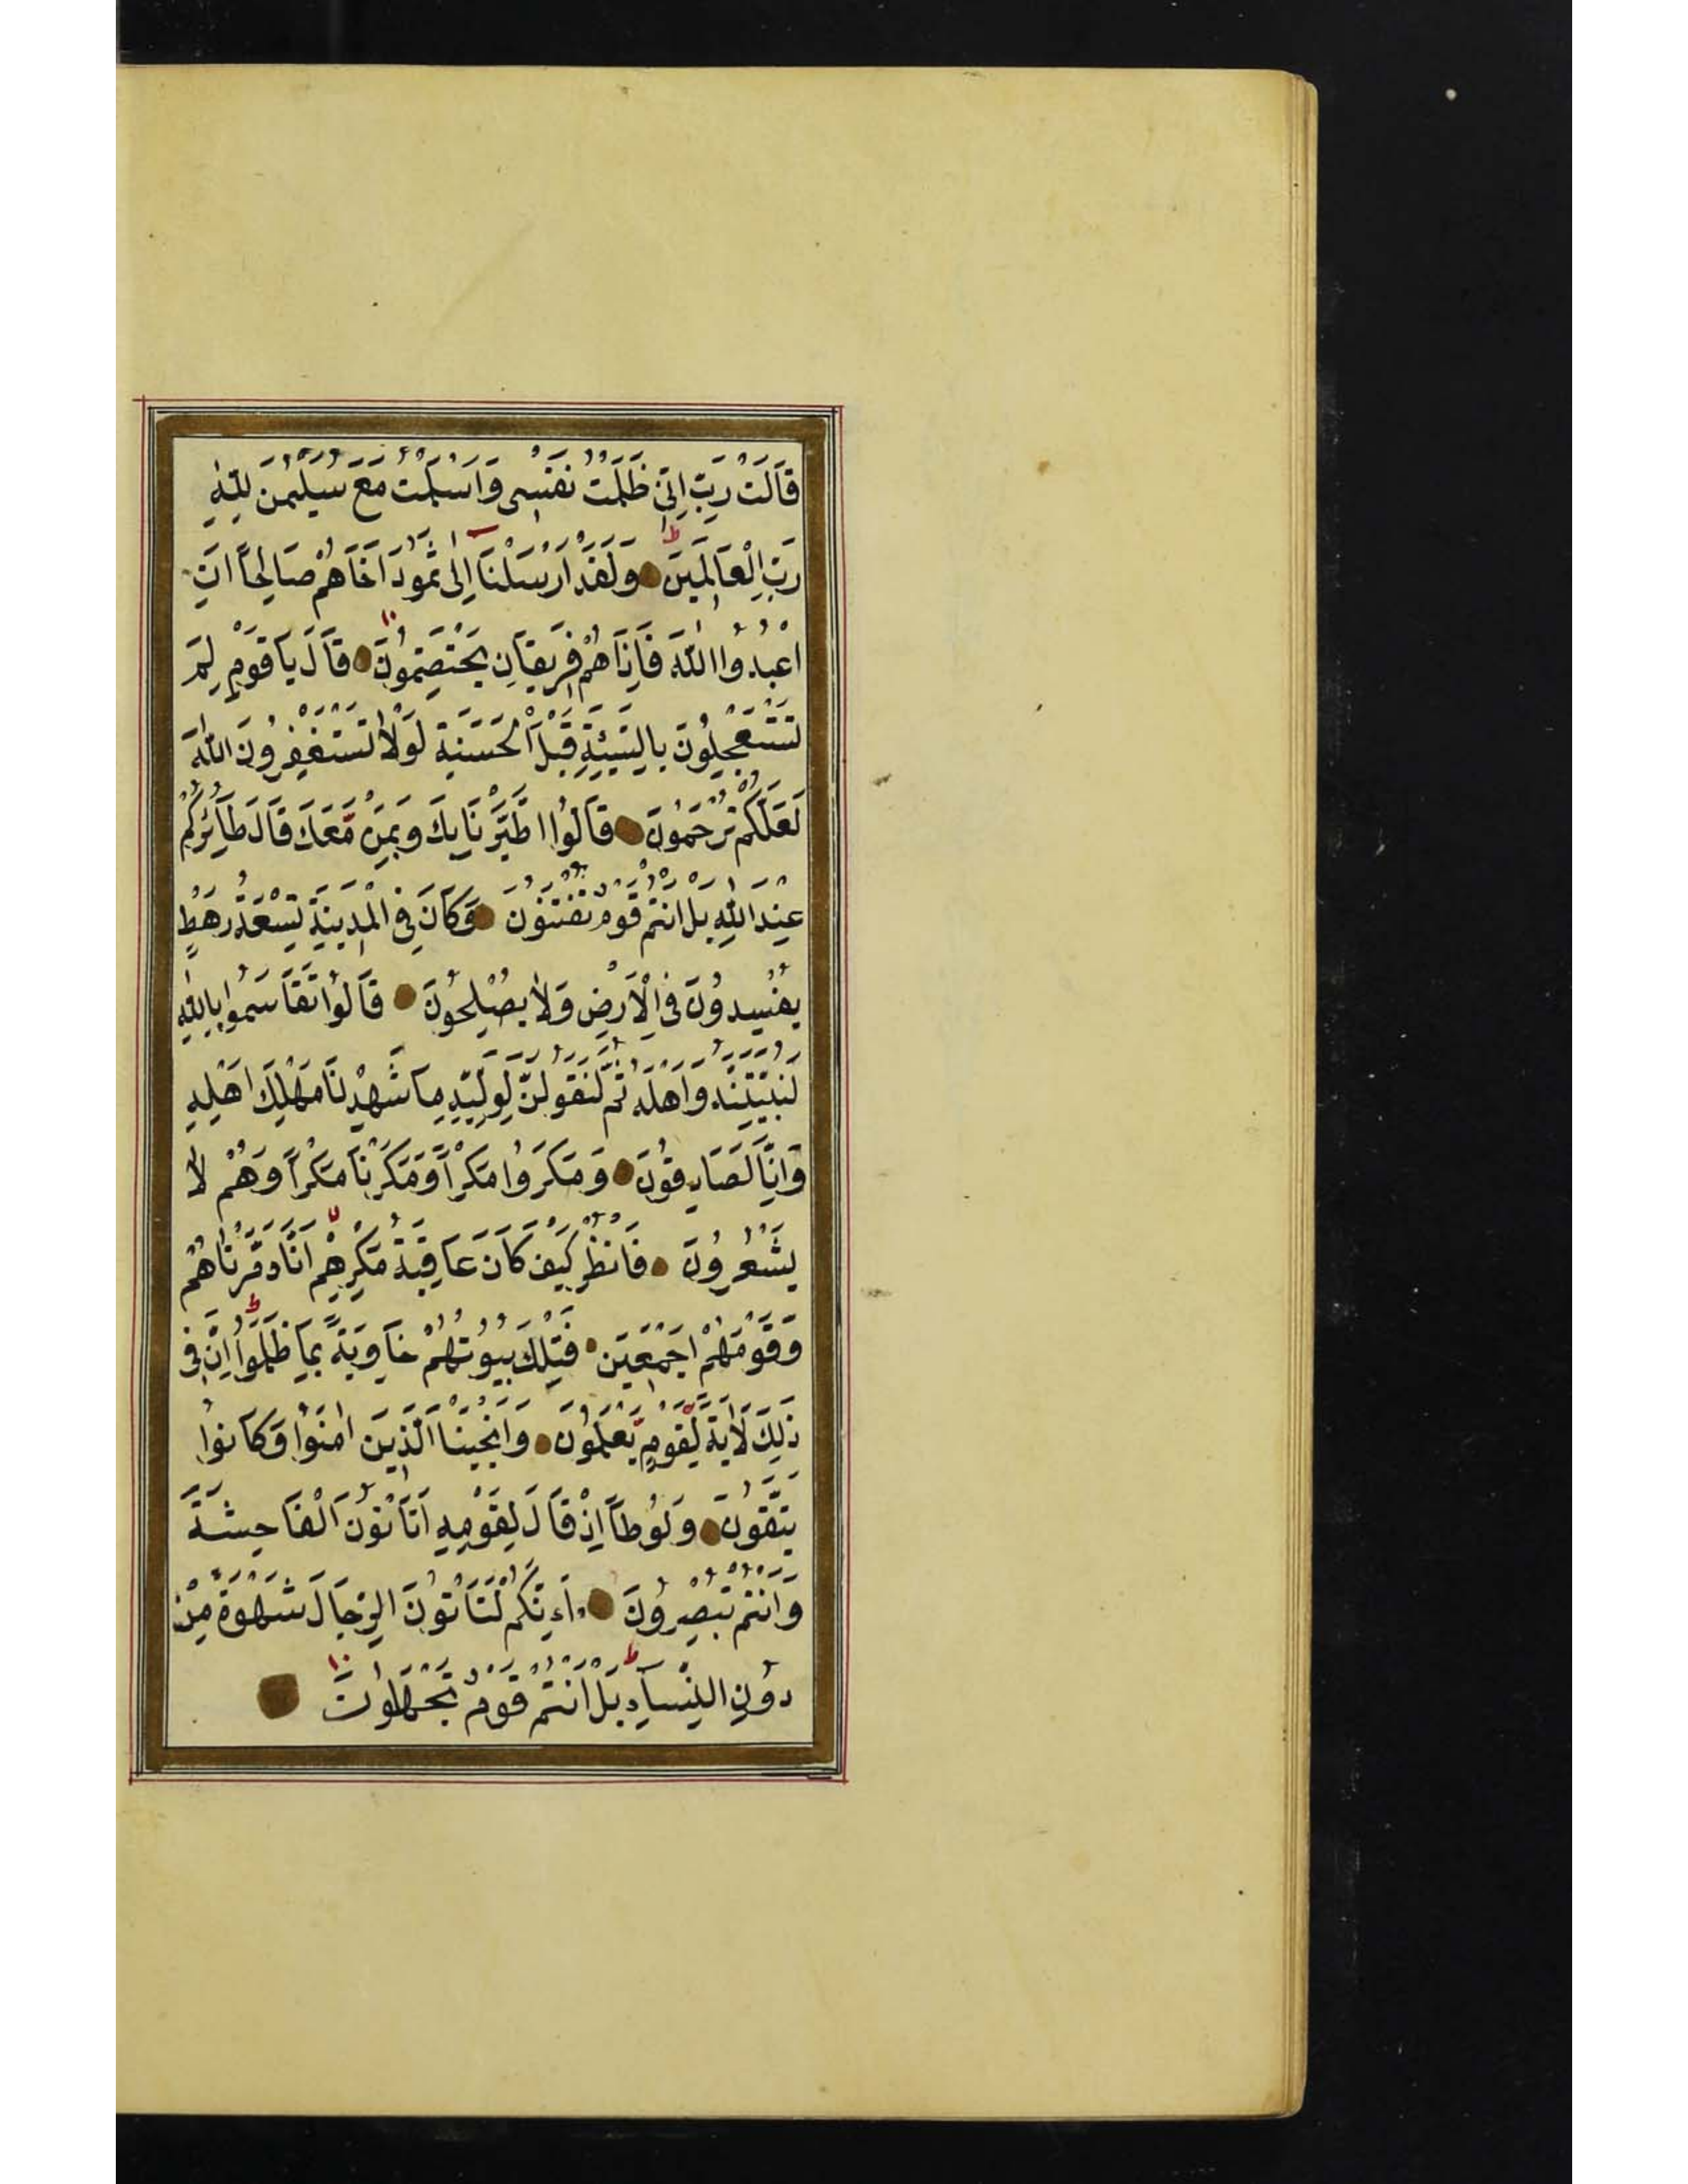 قَالَتْ رَبِّ اِنِّي ظَلَمْتُ نَفْسِي وَاَسْلَمْتُ مَعَ سُلَيْمٰنَ لِلّٰهِ
رَبِّ الْعَالَمِينَ وَلَقَدْ اَرْسَلْنَا اِلٰى ثَمُودَ اَخَاهُمْ صَالِحًا اَنِ
اعْبُدُوا اللّٰهَ فَاِذَا هُمْ فَرِيقَانِ يَخْتَصِمُونَ قَالَ يَا قَوْمِ لِمَ
تَسْتَعْجِلُونَ بِالسَّيِّئَةِ قَبْلَ الْحَسَنَةِ لَوْلَا تَسْتَغْفِرُونَ اللّٰهَ
لَعَلَّكُمْ تُرْحَمُونَ قَالُوا اطَّيَّرْنَا بِكَ وَبِمَنْ مَعَكَ قَالَ طَآئِرُكُمْ
عِنْدَ اللّٰهِ بَلْ اَنْتُمْ قَوْمٌ تُفْتَنُونَ وَكَانَ فِي الْمَدِينَةِ تِسْعَةُ رَهْطٍ
يُفْسِدُونَ فِي الْاَرْضِ وَلَا يُصْلِحُونَ قَالُوا تَقَاسَمُوا بِاللّٰهِ
لَنُبَيِّتَنَّهُ وَاَهْلَهُ ثُمَّ لَنَقُولَنَّ لِوَلِيِّهِ مَا شَهِدْنَا مَهْلِكَ اَهْلِهِ
وَاِنَّا لَصَادِقُونَ وَمَكَرُوا مَكْرًا وَمَكَرْنَا مَكْرًا وَهُمْ لَا
يَشْعُرُونَ فَانْظُرْ كَيْفَ كَانَ عَاقِبَةُ مَكْرِهِمْ اَنَّا دَمَّرْنَاهُمْ
وَقَوْمَهُمْ اَجْمَعِينَ فَتِلْكَ بُيُوتُهُمْ خَاوِيَةً بِمَا ظَلَمُوا اِنَّ فِي
ذٰلِكَ لَاٰيَةً لِقَوْمٍ يَعْلَمُونَ وَاَنْجَيْنَا الَّذِينَ اٰمَنُوا وَكَانُوا
يَتَّقُونَ وَلُوطًا اِذْ قَالَ لِقَوْمِهِ اَتَاْتُونَ الْفَاحِشَةَ
وَاَنْتُمْ تُبْصِرُونَ اَءِنَّكُمْ لَتَاْتُونَ الرِّجَالَ شَهْوَةً مِنْ
دُونِ النِّسَآءِ بَلْ اَنْتُمْ قَوْمٌ تَجْهَلُونَ